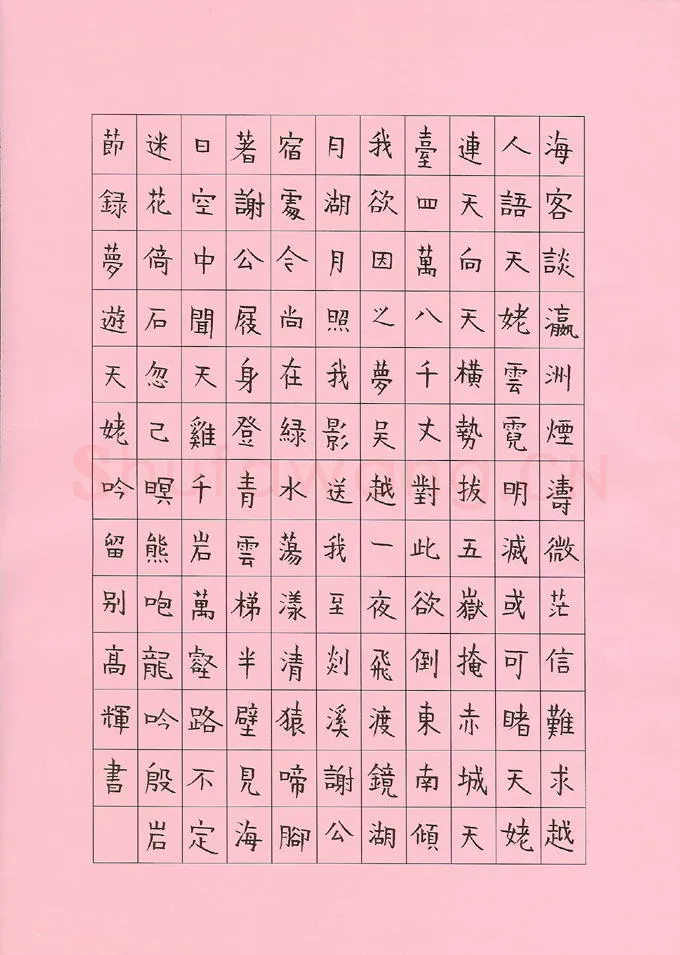 海客談瀛洲煙濤微茫信難求越
人語天姥雲霓明滅或可睹天姥
連天向天橫勢拔五嶽掩赤城天
臺四萬八千丈對此欲倒東南傾
我欲因之夢吳越一夜飛渡鏡湖
月湖月照我影送我至剡溪謝公
宿處今尚在綠水蕩漾清猿啼腳
著謝公屐身登青雲梯半壁見海
日空中聞天雞千岩萬壑路不定
迷花倚石忽己暝熊咆龍吟殷岩
節録夢遊天姥吟留别高輝書
Shufawang.CN